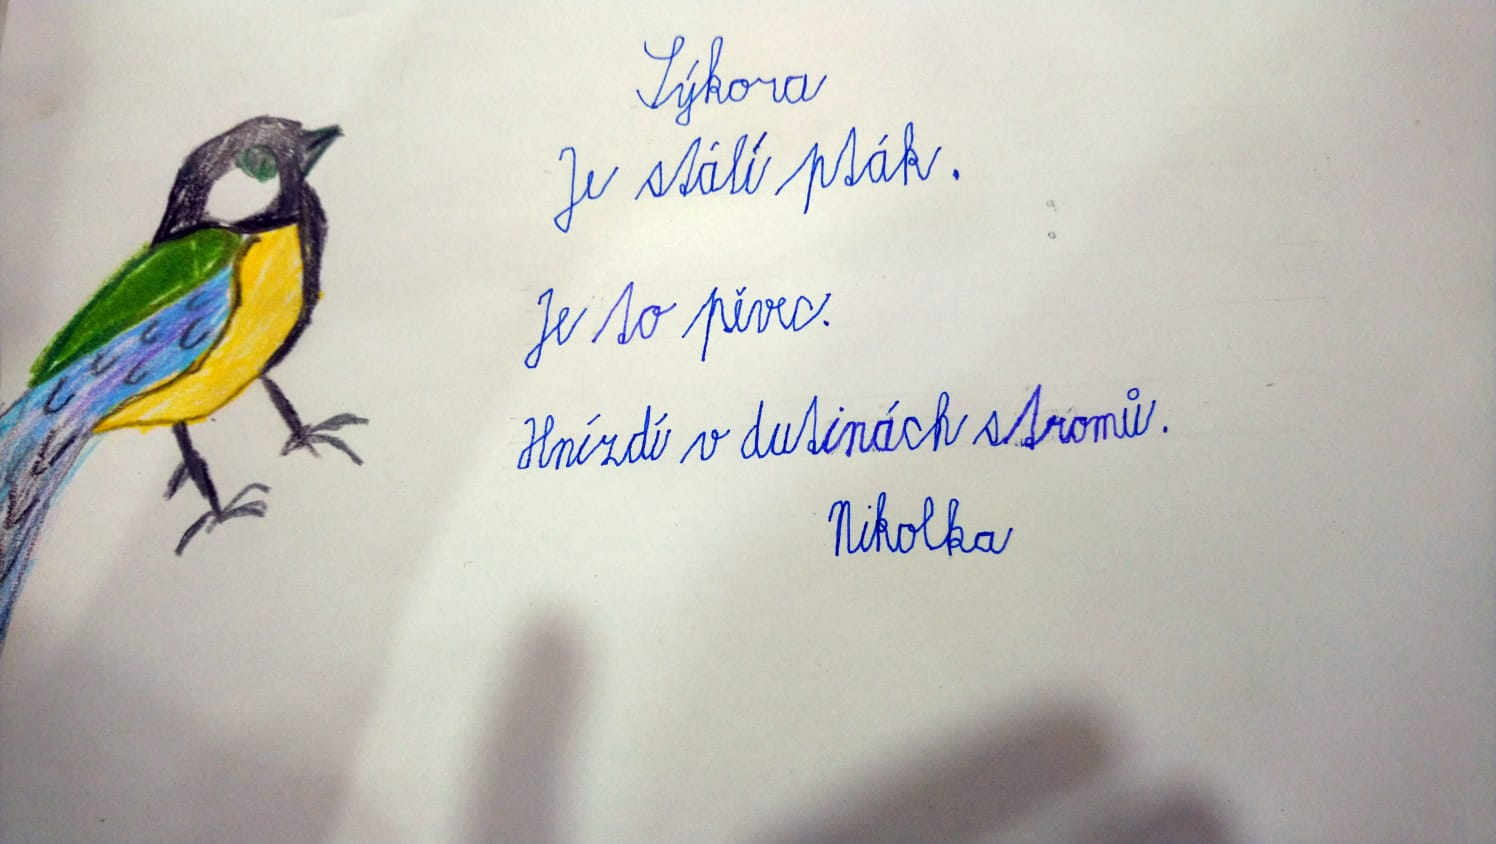 Sýkora
Je stálí pták.
Je to pěvec.
Hnízdí v dutinách stromů.
Nikolka